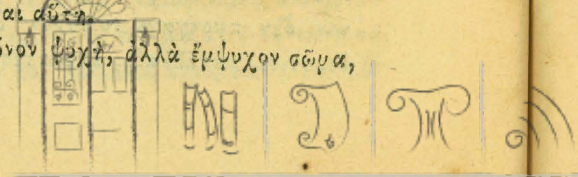 αι αὕτη.
όνον ψυχὴ, ἀλλὰ ἔμψυχον σῶμα,